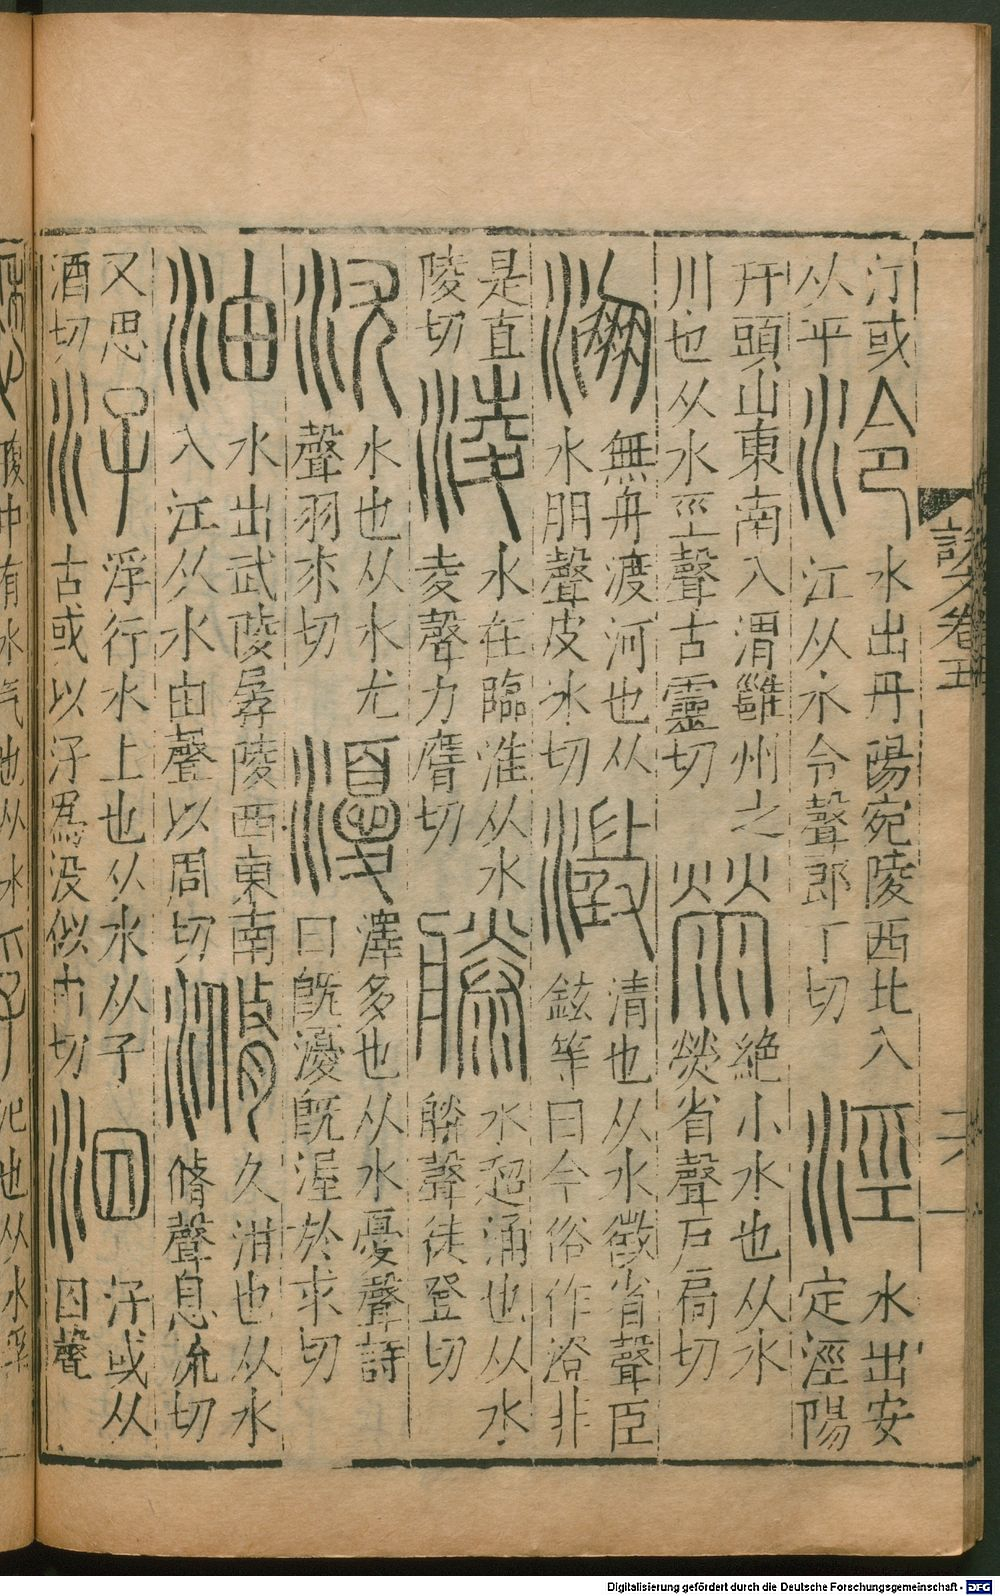 汀或
从平
泠
水出丹陽宛陵西北入
江从水令聲郎丁切
涇
水出安
定涇陽
幵頭山東南入渭雝州之
川也从水巠聲古靈切
滎
絕小水也从水
熒省聲戶扃切
淜
無舟渡河也从
水朋聲皮冰切
澂
清也从水徵省聲臣
鉉等曰今俗作澄非
是直
陵切
淩
水在臨淮从水
夌聲力膺切
滕
水超涌也从水
朕聲徒登切
沋
水也从水尤
聲羽求切
瀀
澤多也从水憂聲詩
曰旣瀀旣渥於求切
油
水出武陵孱陵西東南
入江从水由聲以周切
滫
久泔也从水
脩聲息流切
又思
酒切
汓
浮行水上也从水从子
古或以汓爲没似由切
泅
汓或从
囚聲
說文卷五
Digitalisierung gefördert durch die Deutsche Forschungsgemeinschaft - DFG